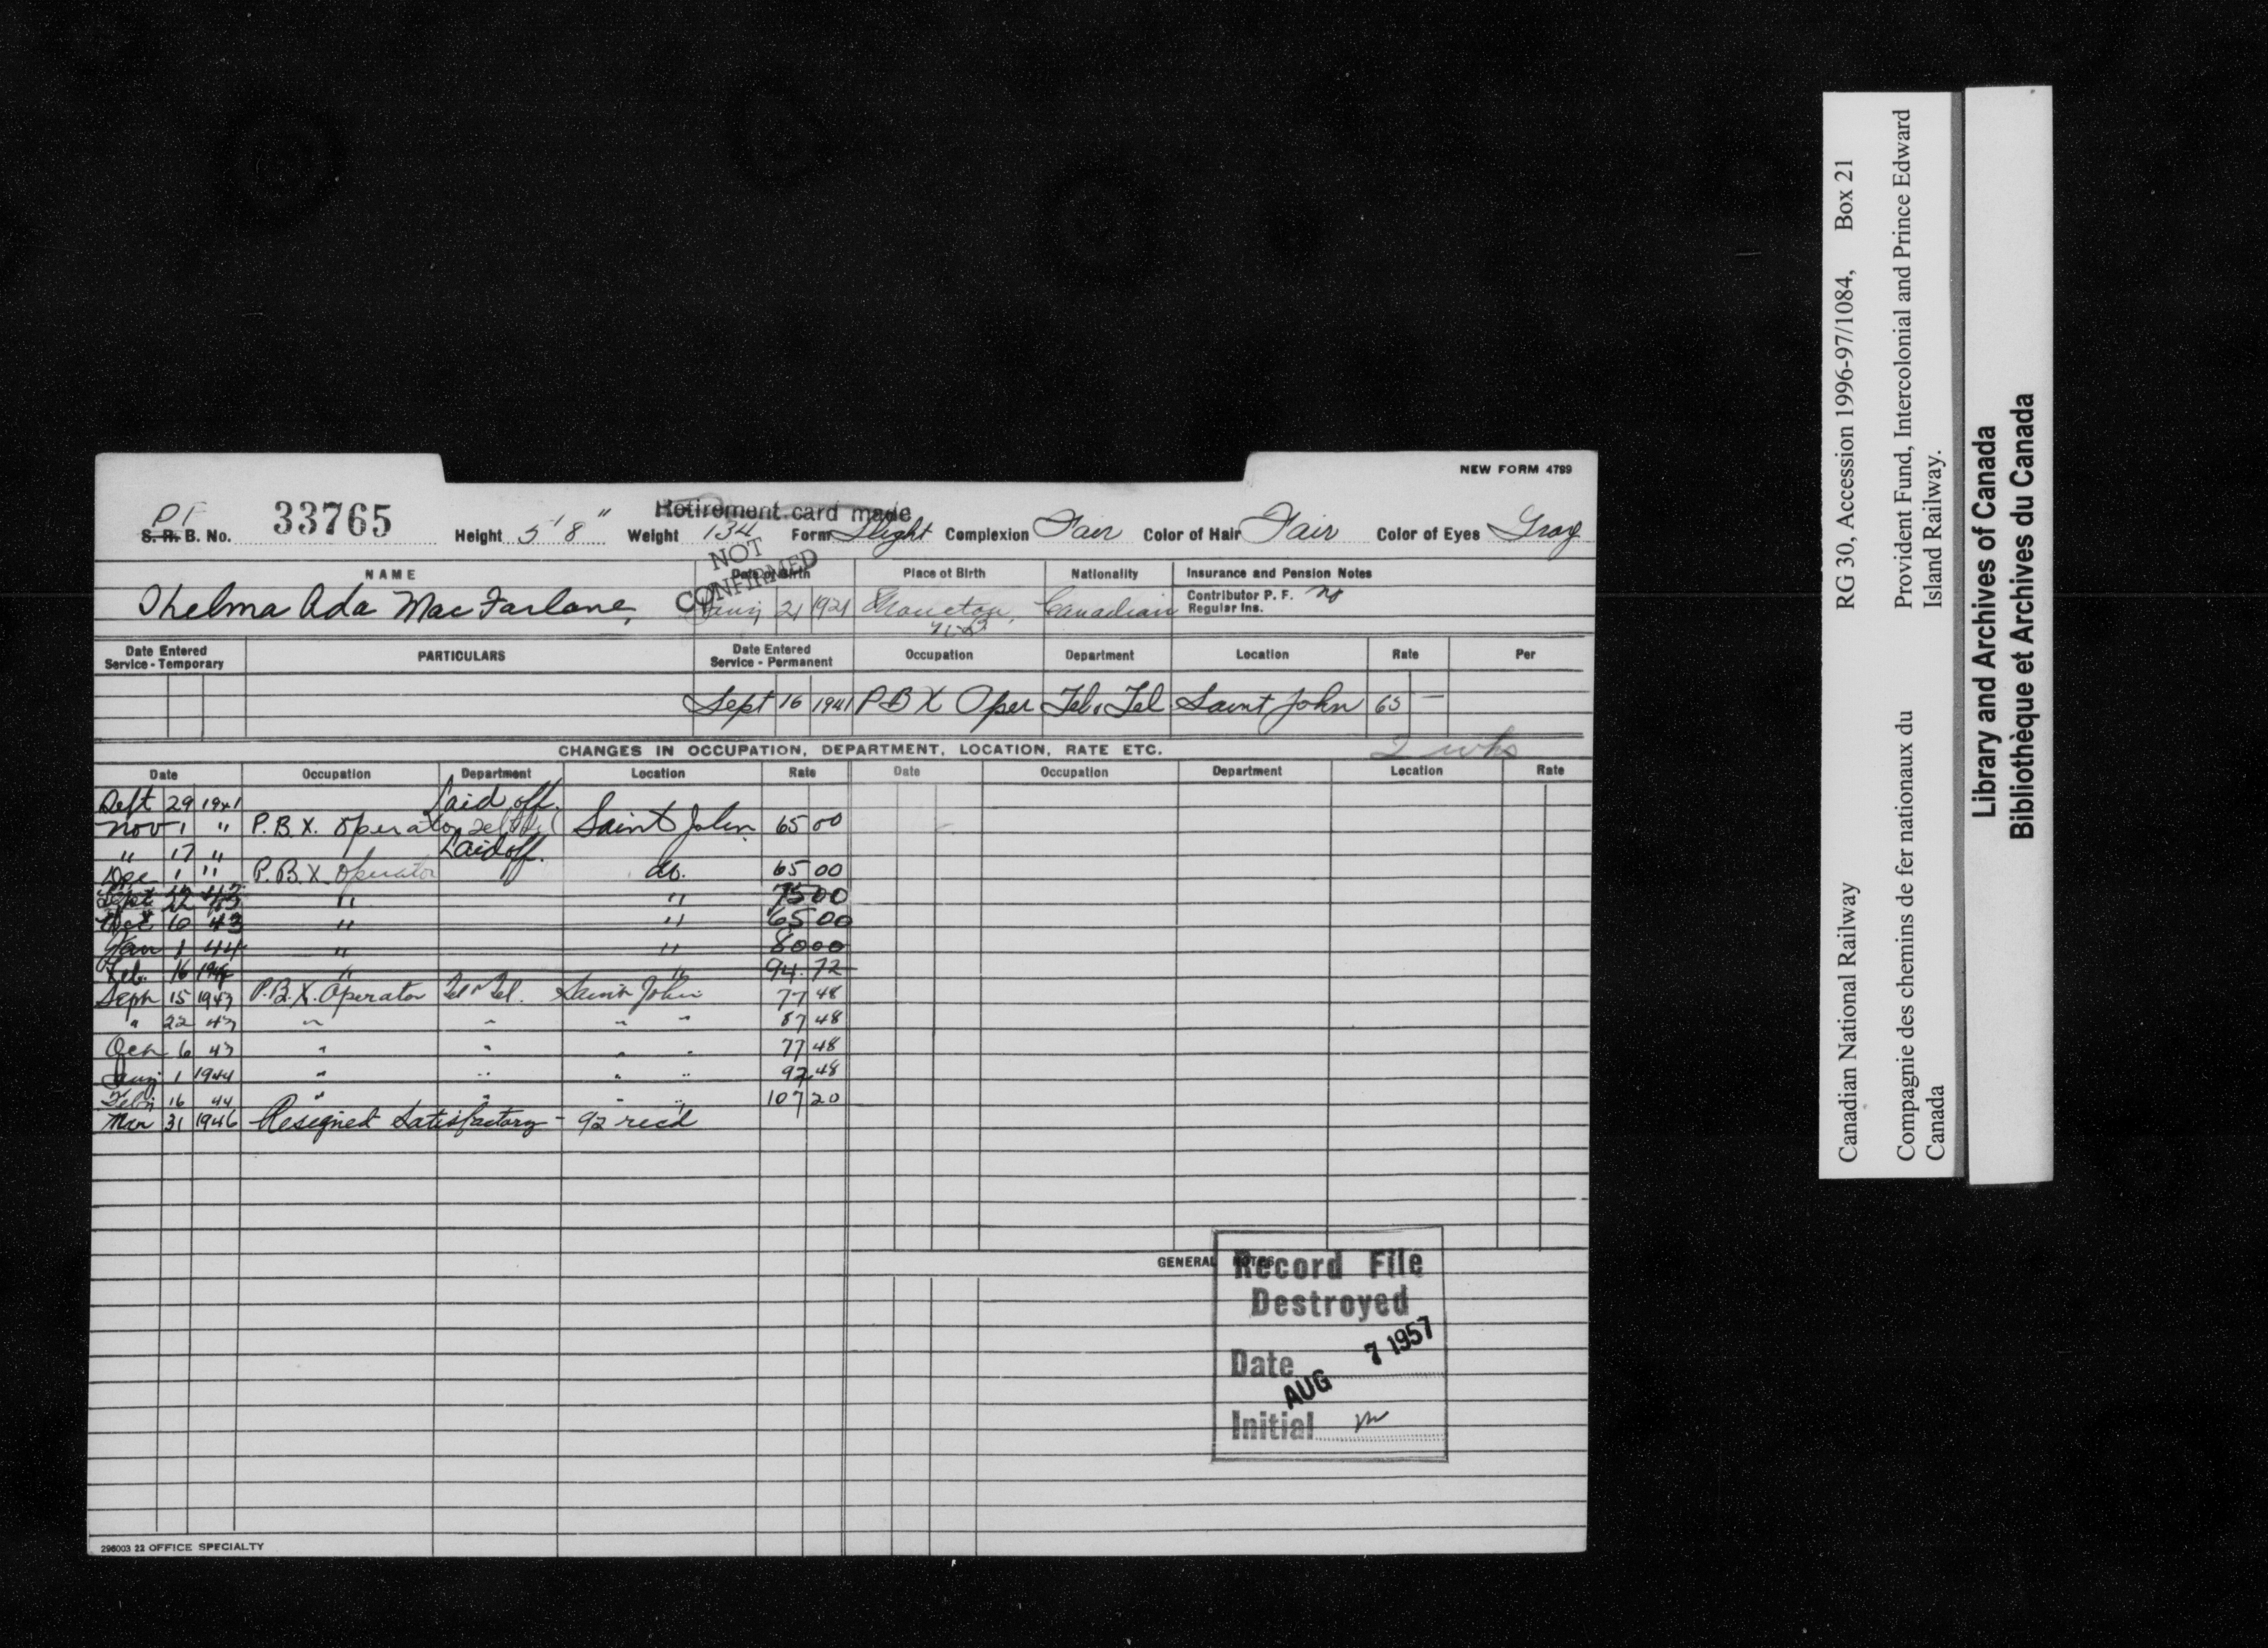 NEW FORM 4799
Retirement card made
PF
S. R. B. No. 33765 Height 5' 8" Weight 134 Form Slight Complexion Fair Color of Hair Fair Color of Eyes Gray
NOT CONFIRMED
NAME Date of Birth Place of Birth Nationality Insurance and Pension Notes
Thelma Ada MacFarlane, 21 1921 Moncton, N.B. Canadian Contributor P. F. No
Regular Ins.
Date Entered Service - Temporary PARTICULARS Date Entered Service - Permanent Occupation Department Location Rate Per
Sept 16 1941 P B X Oper Tel. Tel Saint John 65 —
CHANGES IN OCCUPATION, DEPARTMENT, LOCATION, RATE ETC. 2 wks
Date Occupation Department Location Rate Date Occupation Department Location Rate
Sept 29 1941 Laid off.
Nov 1 " P.B.X. Operator Saint John 65 00
" 17 " Laid off.
Dec 1 " P.B.X. Operator do. 65 00
Sept 22 43 " " 75 00
Oct 6 43 " " 65 00
Jan 1 44 " " 80 00
Feb. 16 1944 " " 94.72
Sept 15 1943 P.B.X. Operator Tel & Tel. Saint John 77 48
" 22 43 " " " " 87 48
Oct 6 43 " " " " 77 48
1 1944 " " " " 92.48
16 44 " " " " 107 20
Mar 31 1946 Resigned Satisfactory - 92 recd
GENERAL NOTES
Record File
Destroyed
Date AUG 7 1957
Initial
296003 22 OFFICE SPECIALTY
Canadian National Railway RG 30, Accession 1996-97/1084, Box 21
Compagnie des chemins de fer nationaux du Canada Provident Fund, Intercolonial and Prince Edward Island Railway.
Library and Archives of Canada
Bibliothèque et Archives du Canada